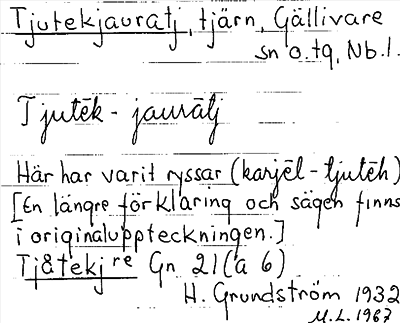 Tjutekjauratj, tjärn, Gällivare
sn o. tg, Nb. l.
Tjutēk - jaurātj
Här har varit ryssar (karjēl - tjutēh)
[En längre förklaring och sägen finns
i originaluppteckningen.]
Tjåtekj re Gn 21 (a 6)
H. Grundström 1932
M. L. 1967